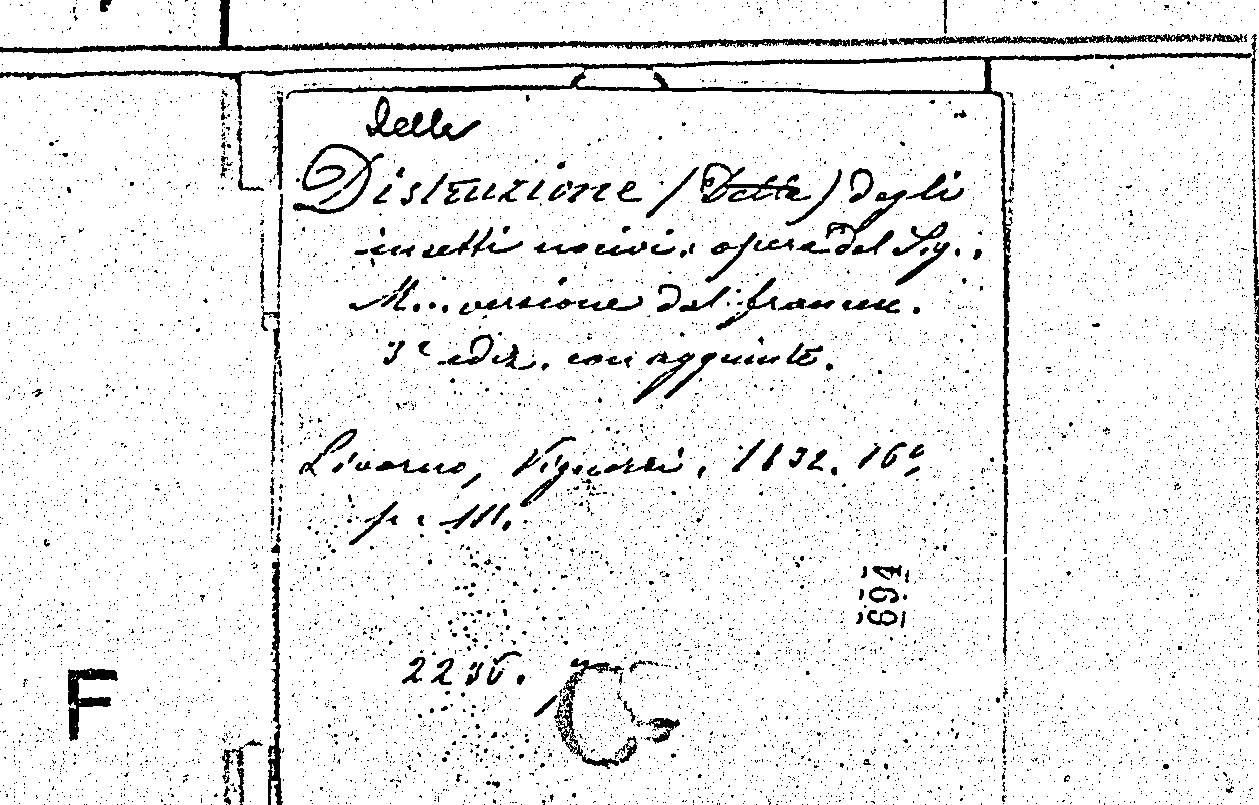 Delle
Distruzione (Delle) degli
insetti nocivi, opera del Sig.
M... versione dal francese.
3ª ediz. con aggiunte.
Livorno, Vignozzi, 1832. 16º
p. 111.
694
2236.
F